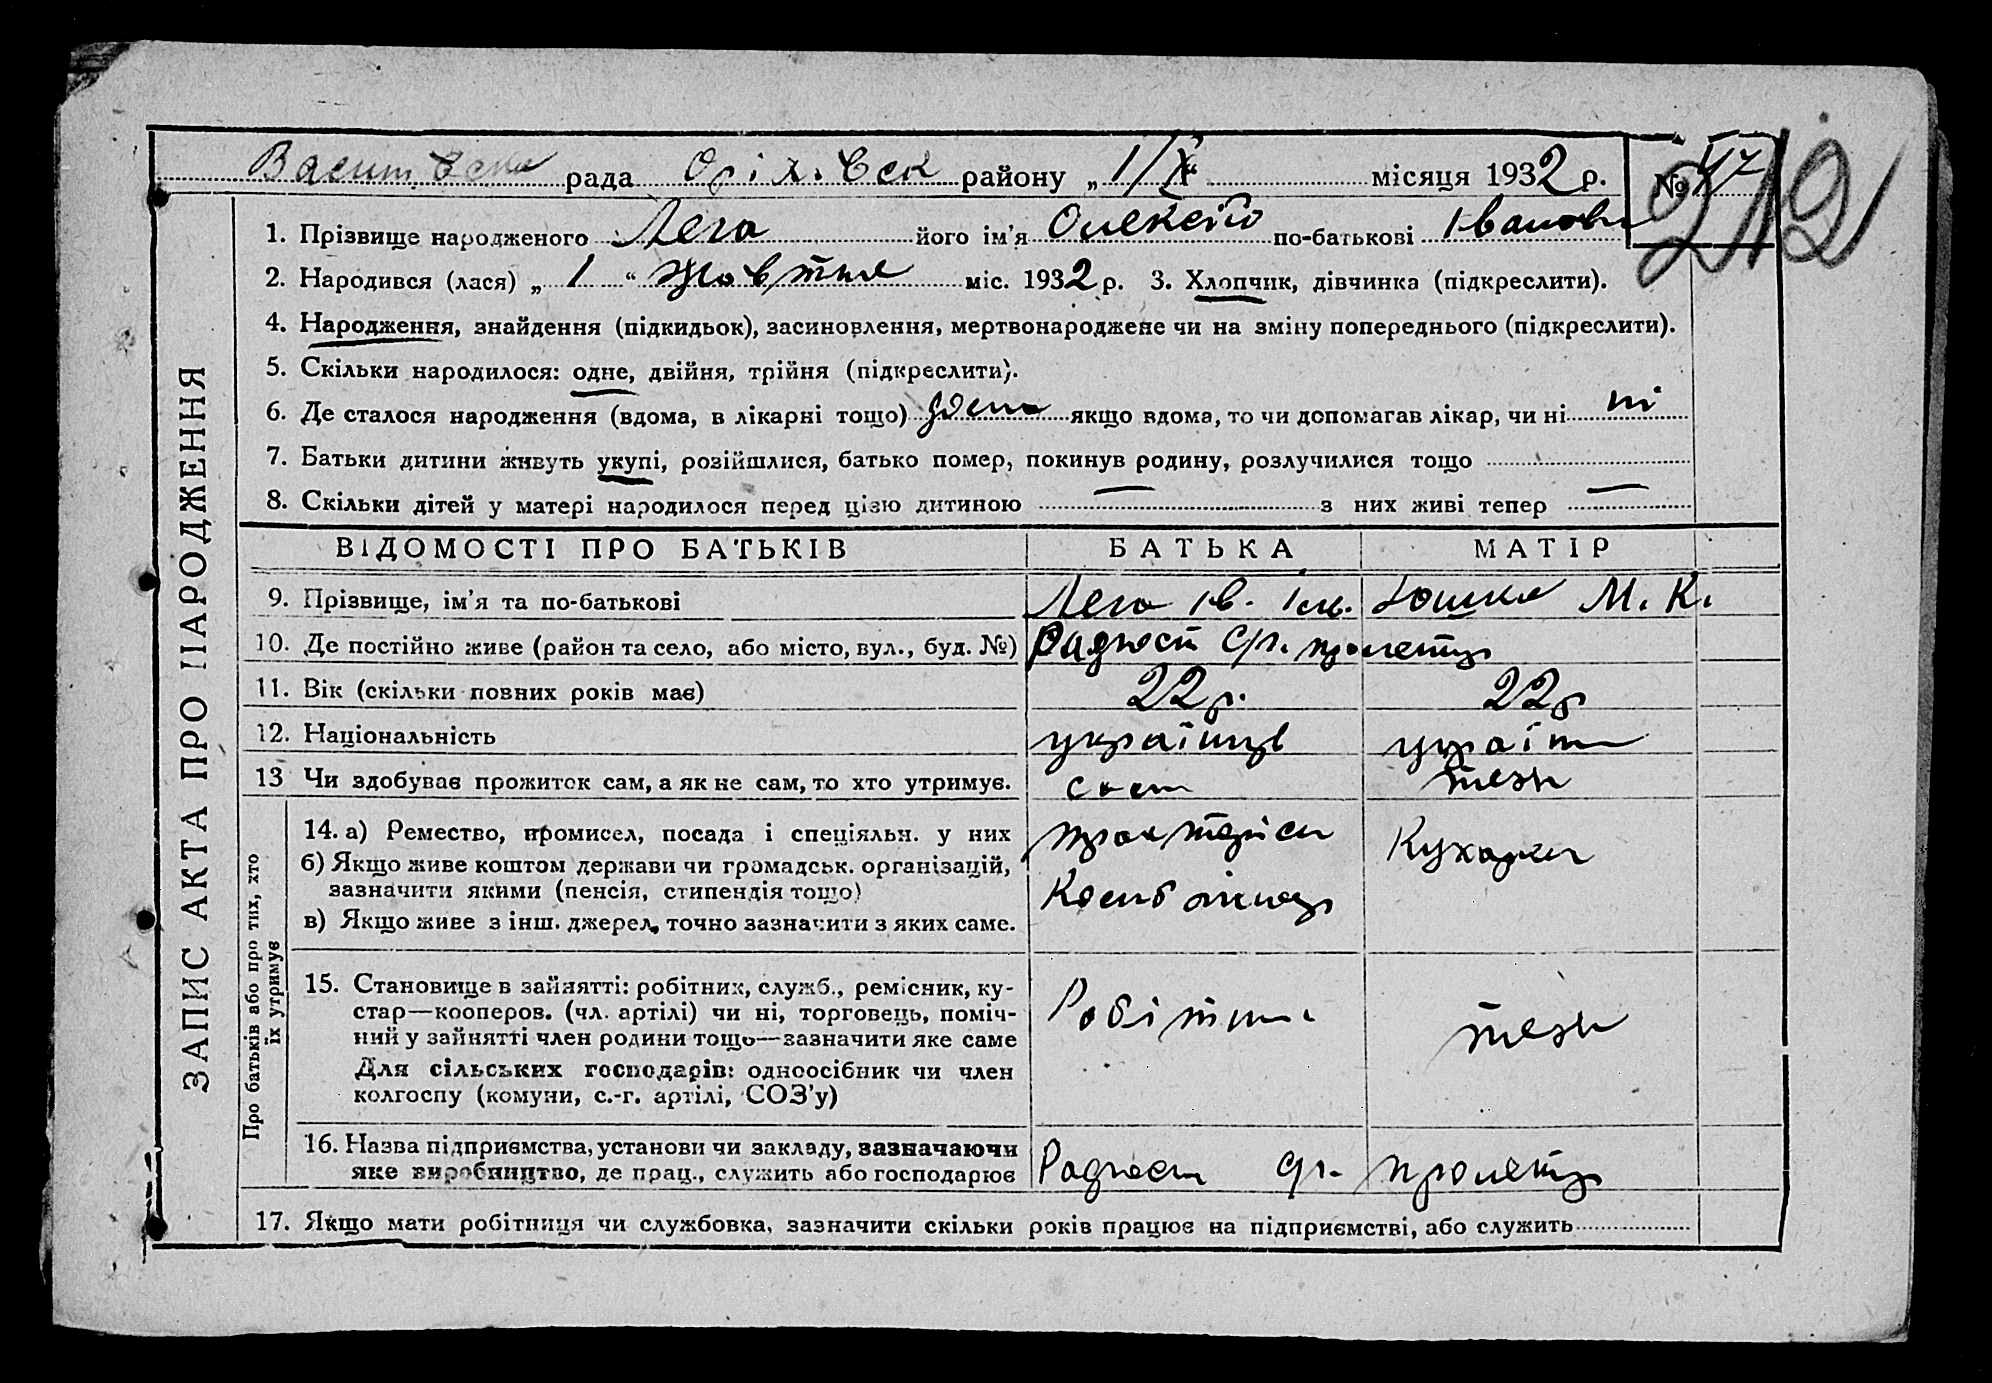 рада Оріхівск району „ 1/X місяця 1932 р. № 47
212
1. Прізвище народженого Лега його ім'я Олексій по-батькові Іванови
2. Народився (лася) „ 1 “ Жовтня міс. 1932 р. 3. Хлопчик, дівчинка (підкреслити).
4. Народження, знайдення (підкидьок), засиновлення, мертвонароджене чи на зміну попереднього (підкреслити).
5. Скільки народилося: одне, двійня, трійня (підкреслити).
6. Де сталося народження (вдома, в лікарні тощо) якщо вдома, то чи допомагав лікар, чи ні ні
7. Батьки дитини живуть укупі, розійшлися, батько помер, покинув родину, розлучилися тощо
8. Скільки дітей у матері народилося перед цією дитиною — з них живі тепер —
ВІДОМОСТІ ПРО БАТЬКІВ БАТЬКА МАТІР
9. Прізвище, ім'я та по-батькові Лега Ів. М. К.
10. Де постійно живе (район та село, або місто, вул., буд. №) Радгосп
11. Вік (скільки повних років має) 22 р. 22 р
12. Національність українць україн
13 Чи здобуває прожиток сам, а як не сам, то хто утримує. сам теж
14. а) Ремество, промисел, посада і спеціяльн. у них
б) Якщо живе коштом держави чи громадськ. організацій,
зазначити якими (пенсія, стипендія тощо)
в) Якщо живе з інш. джерел, точно зазначити з яких саме.
Кухарка
15. Становище в зайнятті: робітник, служб., ремісник, ку-
стар—кооперов. (чл. артілі) чи ні, торговець, поміч-
ний у зайнятті член родини тощо—зазначити яке саме
Для сільських господарів: одноосібник чи член
колгоспу (комуни, с.-г. артілі, СОЗ'у)
Робітник теж
16. Назва підприємства, установи чи закладу, зазначаючи
яке виробництво, де прац., служить або господарює
Радгосп
17. Якщо мати робітниця чи службовка, зазначити скільки років працює на підприємстві, або служить
ЗАПИС АКТА ПРО НАРОДЖЕННЯ
Про батьків або про тих, хто
їх утримує